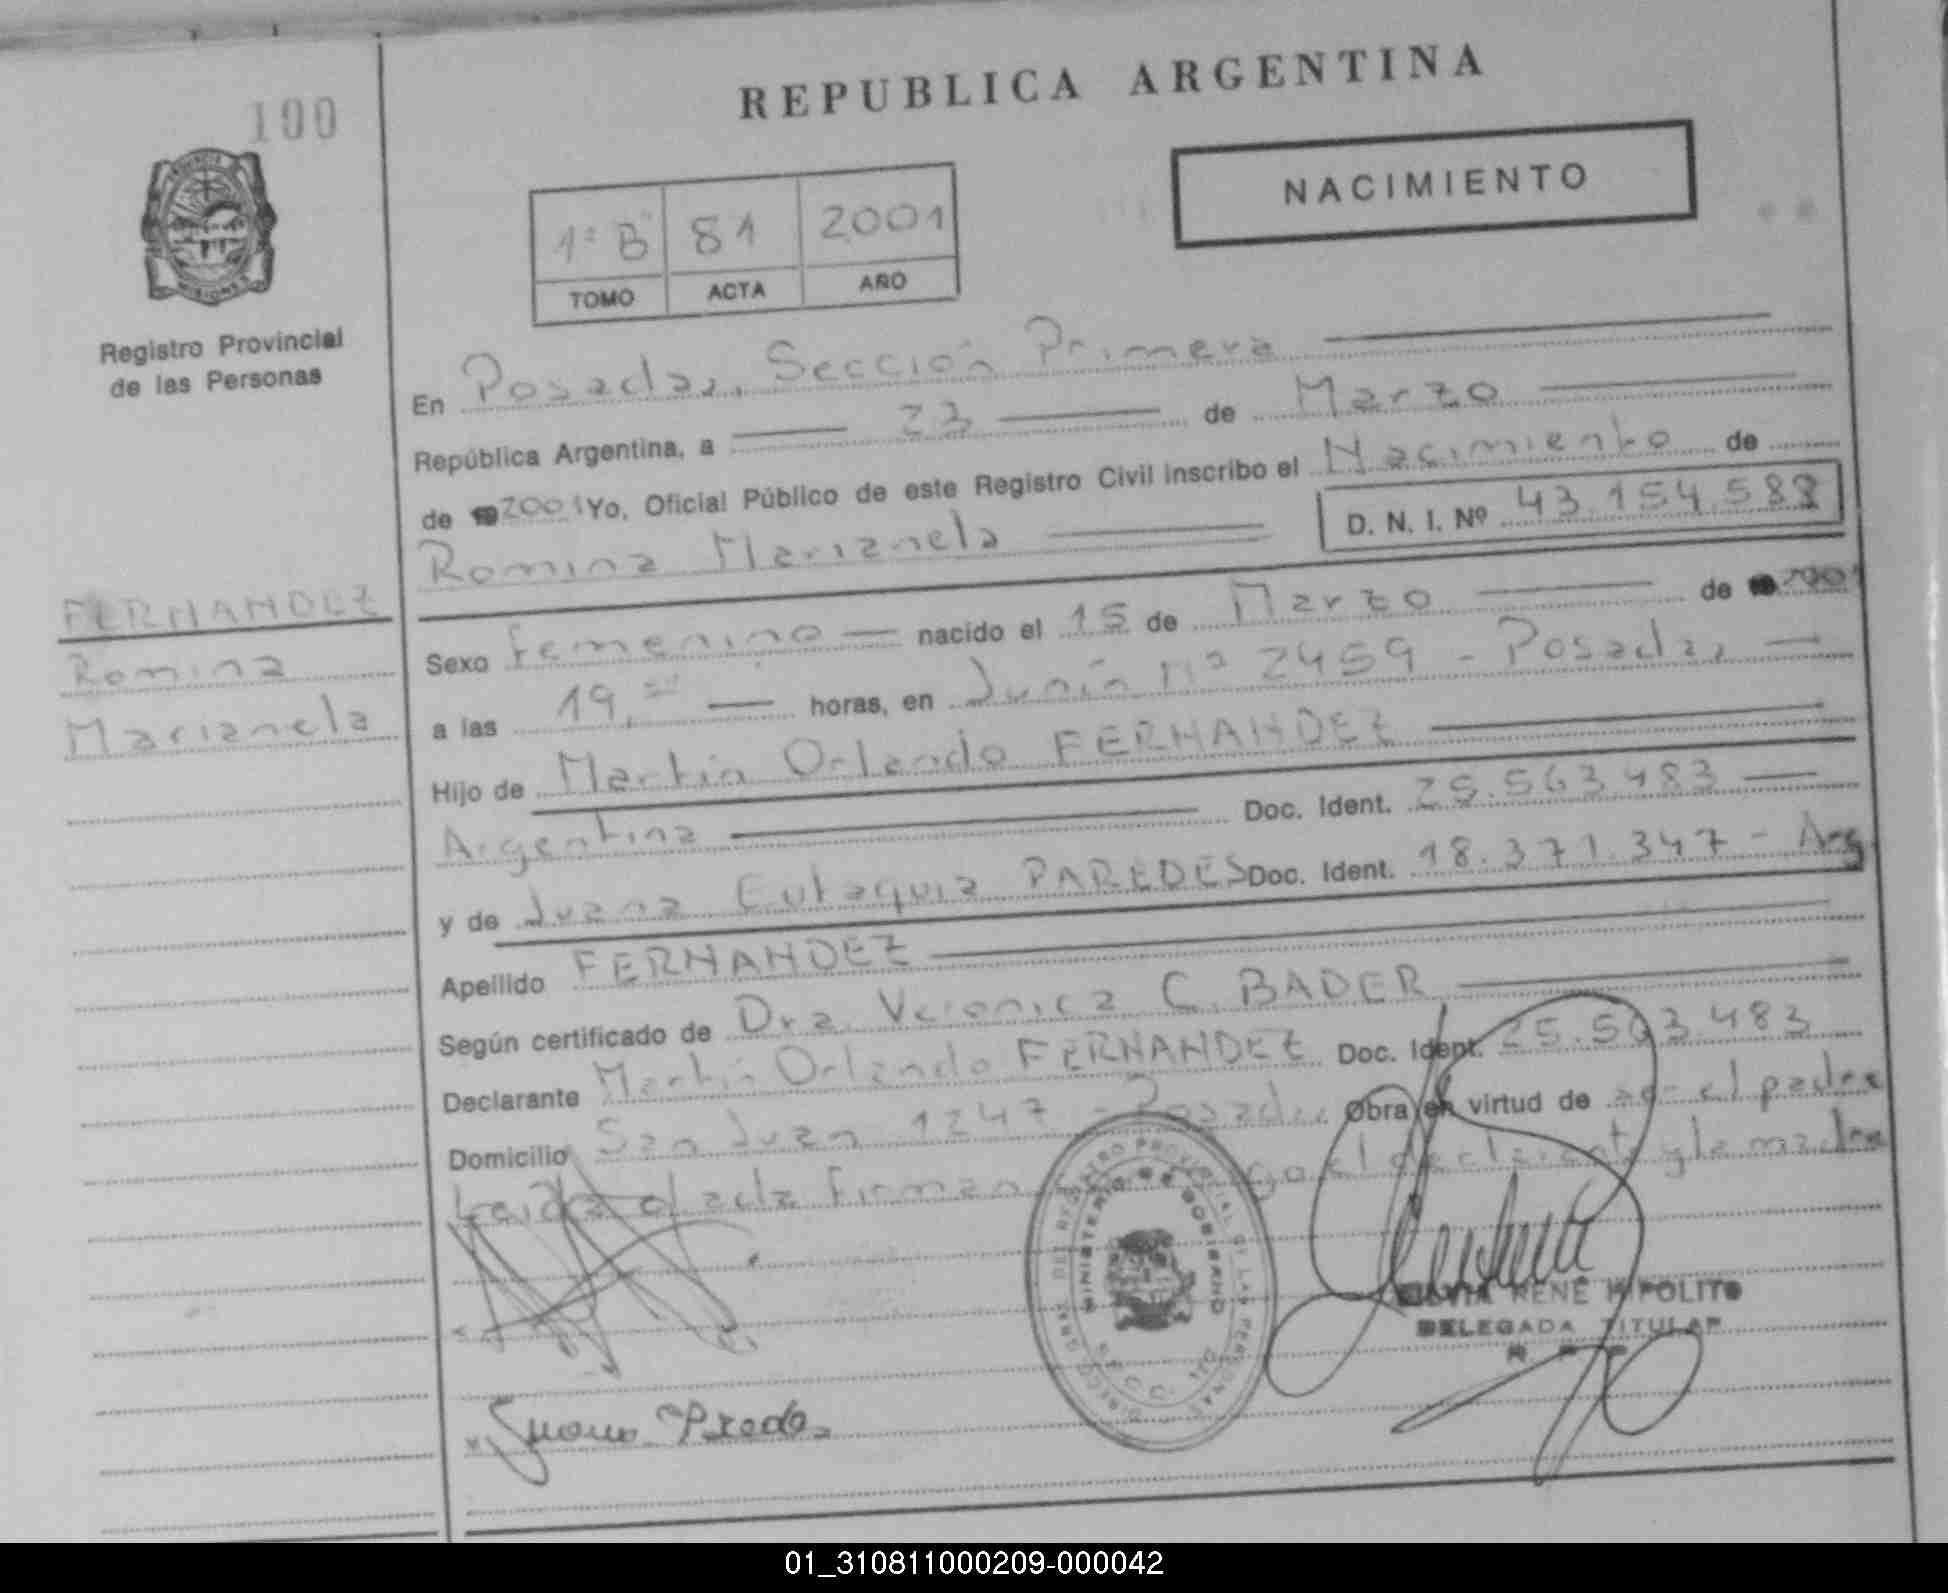 100
REPUBLICA ARGENTINA
NACIMIENTO
1ª "B" 81 2001
TOMO ACTA AÑO
PROVINCIA
MISIONES
Registro Provincial
de las Personas
En Posadas, Sección Primera
República Argentina, a 23 de Marzo
de 2001 Yo, Oficial Público de este Registro Civil inscribo el Nacimiento de
Romina Marianela D. N. I. Nº 43.154.588
FERNANDEZ
Romina
Marianela
Sexo femenino nacido el 15 de Marzo de 2001
a las 19, horas, en Junín Nº 2459 - Posadas
Hijo de Martín Orlando FERNANDEZ
Argentina Doc. Ident. 25.563.483
y de Juana Eutaquia PAREDES Doc. Ident. 18.371.347 - Arg
Apellido FERNANDEZ
Según certificado de Dra. Veronica C. BADER
Declarante Martín Orlando FERNANDEZ Doc. Ident. 25.563.483
Domicilio San Juan 1247 - Posadas Obra en virtud de ser el padre
Leída el acta firman el declarante y la madre
DIRECC. GRAL. DEL REGISTRO PROVINCIAL DE LAS PERSONAS
MINISTERIO DE GOBIERNO
RENÉ HIPOLITO
DELEGADA TITULAR
Juana Prado
01_310811000209-000042